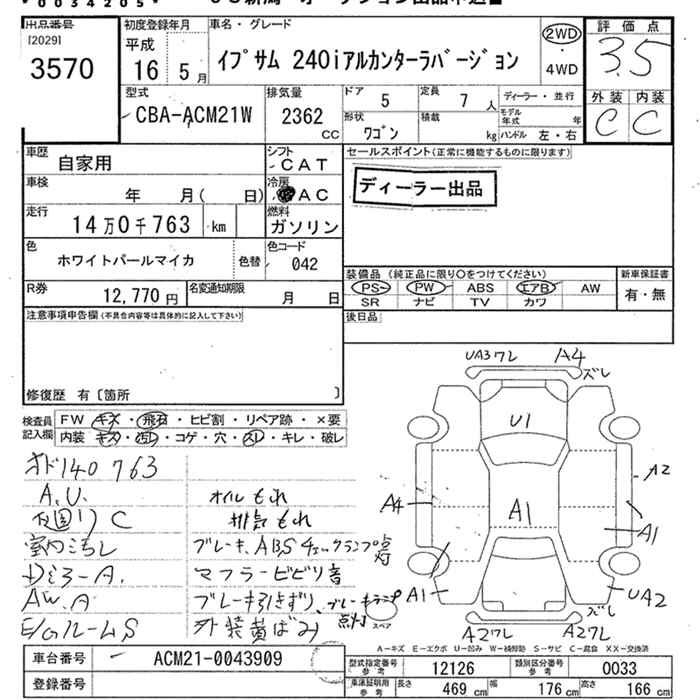 出品番号
[2029]
3570
初度登録年月
平成
16年 5月
車名・グレード
イプサム 240iアルカンターラバージョン
2WD
・
4WD
評価点
3.5
外装 内装
C C
型式
CBA-ACM21W
排気量
2362
CC
ドア
5
定員
7 人
形状
ワゴン
積載
kg
ディーラー・並行
モデル年式 年
ハンドル 左・右
車歴
自家用
シフト
CAT
車検
年 月( 日)
冷房
AC
走行
14万0千763 km
燃料
ガソリン
色
ホワイトパールマイカ
色替
色コード
042
R券
12,770 円
名変通知期限
月 日
セールスポイント(正常に機能するものに限ります)
ディーラー出品
装備品 (純正品に限り○をつけてください)
PS PW ABS エアB AW
SR ナビ TV カワ
新車保証書
有・無
後日品
注意事項申告欄(不具合内容等は具体的に記入して下さい)
修復歴 有〔箇所 〕
検査員記入欄
FW キズ・飛石・ヒビ割・リペア跡・×要
内装 キズ・汚レ・コゲ・穴・スレ・キレ・破レ
オド140763
A.U.
C
オイルもれ
排気もれ
室内汚レ
ブレーキ、ABSチェックランプ点灯
マフラービビリ音
AW.A
ブレーキ引きずり、ブレーキランプ点灯
E/Gルーム S
外装黄ばみ
UA3ワレ A4
ズレ
U1
A2
A4
A1
A1
A1
UA2
ズレ
A2ワレ
A2ワレ
スペア
A-キズ E-エクボ U-凹み W-補修跡 S-サビ C-腐食 XX-交換済
車台番号
ACM21-0043909
登録番号
型式指定番号 参考
12126
類別区分番号 参考
0033
車庫証明用 参考
長さ 469 cm
幅 176 cm
高さ 166 cm